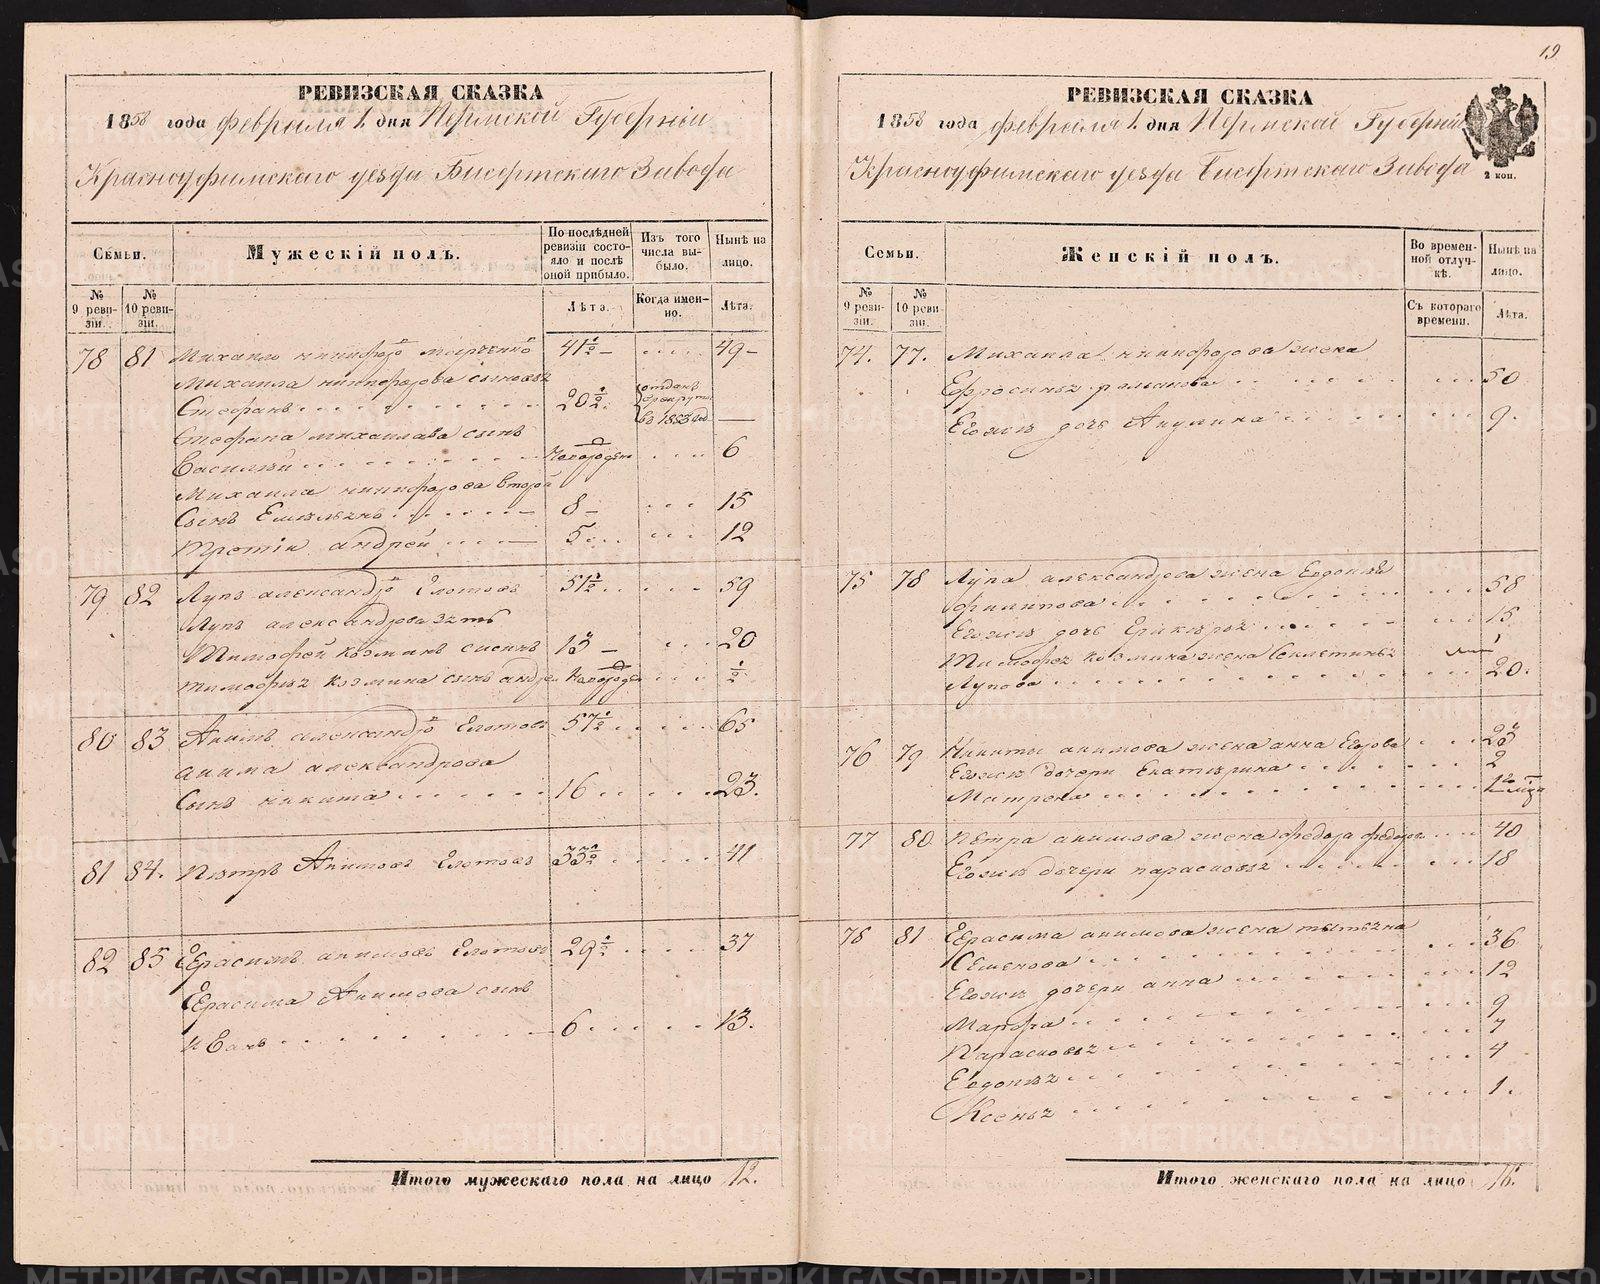 19
РЕВИЗСКАЯ СКАЗКА
1858 года февраля 1. дня Пермской Губернiи
Красноуфимскаго уезда Бисертскаго Завода
Семьи.
Мужескiй полъ.
По послѣдней ревизiи состояло и послѣ оной прибыло.
Изъ того числа выбыло.
Нынѣ на лицо.
№ 9 ревизiи.
№ 10 ревизiи.
Лѣта.
Когда именно.
Лѣта.
78 81 Михаило никифоро 41½ – 49 –
Михаила никифорова сыновья
Стефанъ 20½. отданъ в рекруты в 1853 год —
Стефана михаилова сынъ
Василий новорожден 6
Михаила никифорова второй
Сынъ Емельянъ 8 – 15
Третiй андрей 5 12
79 82 Лупъ александро Елотовъ 51½ 59
Лупа александрова зять
Тимофей козминъ 13 – 20
Тимофея козмина сынъ андре новорожден ½
80 83 Акимъ александро Елотовъ 57½ 65
акима александрова
Сынъ никита 16 23.
81 84. Петръ Акимовъ Елотовъ 33½ 41
82 85 Герасимъ акимовъ Елотовъ 29½ 37
Герасима Акимова сынъ
Иванъ 6 13.
Итого мужескаго пола на лицо 12.
РЕВИЗСКАЯ СКАЗКА
1858 года февраля 1. дня Пермской Губернiи
Красноуфимскаго уезда Бисертскаго Завода
2 коп.
Семьи.
Женскiй полъ.
Во временной отлучкѣ.
Нынѣ на лицо.
№ 9 ревизiи.
№ 10 ревизiи.
Съ котораго времени.
Лѣта.
74. 77. Михаила никифорова жена
Ефросинья романова 50
Егожъ дочь Акулина 9.
75 78 Лупа александрова жена Евдокия
филипова 58
Егожъ дочь 15
Тимофея козмина жена
Лупова 20.
76 79 Никиты акимова жена анна Егорова 23
Егожъ дочери Екатерина 2
Матрена
77 80 Петра акимова жена федора 40
Егожъ дочери парасковья 18
78 81 Герасима акимова жена татьяна
Семенова 36
Егожъ дочери анна 12
Марфа 9
Парасковья 7
Евдокия 4
Ксенья 1.
Итого женскаго пола на лицо 16.